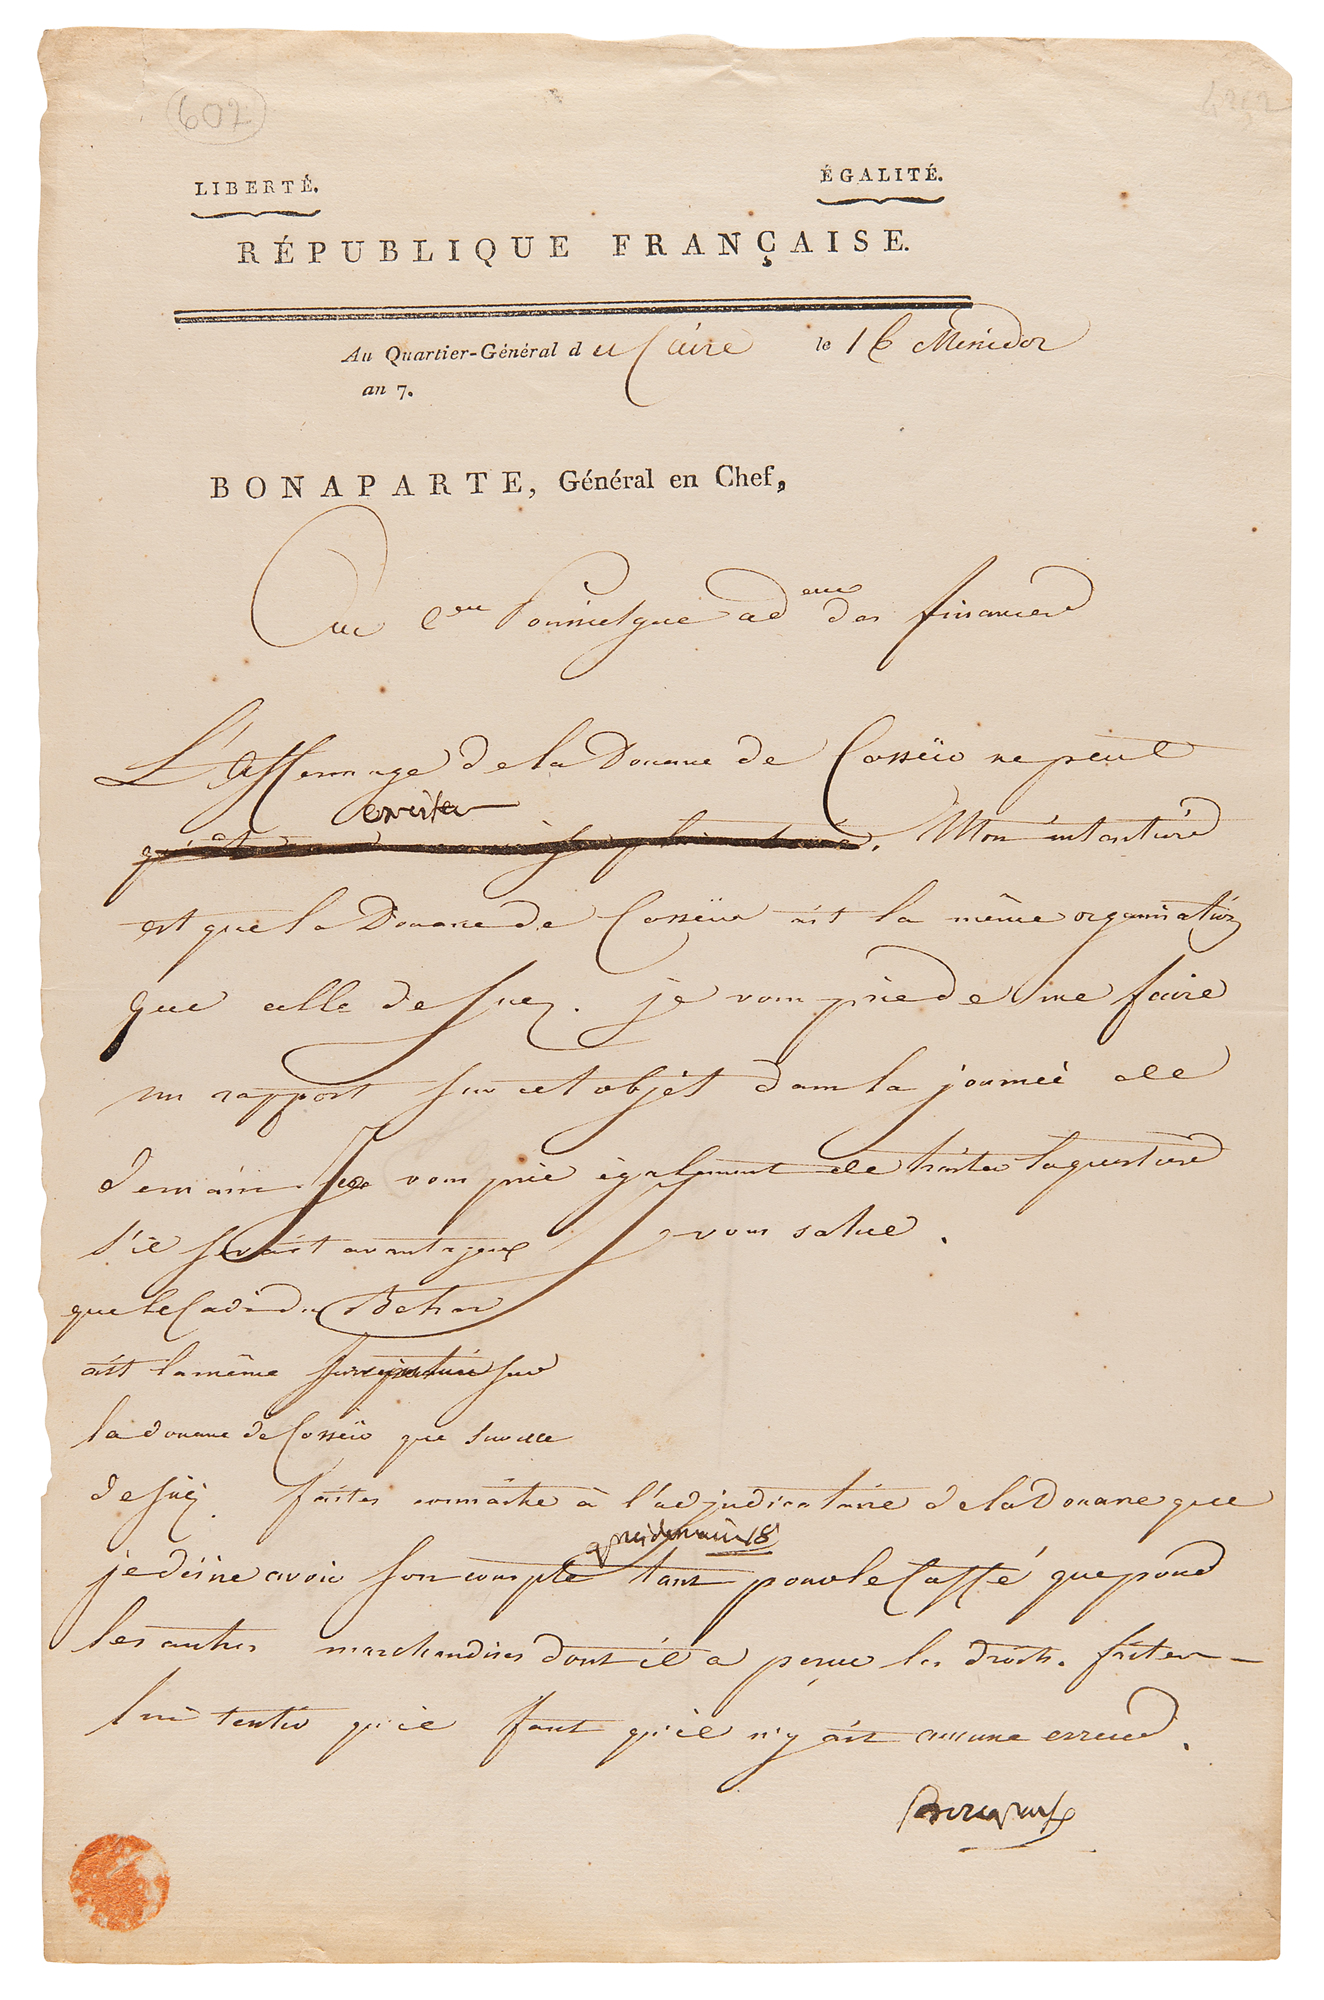 607
4252
LIBERTÉ. ÉGALITÉ.
RÉPUBLIQUE FRANÇAISE.
Au Quartier-Général du Caire le 16 Messidor
an 7.
BONAPARTE, Général en Chef,
Au Cen Poussielgue ad eur des finances
L'affermage de la Douane de Cosseïr ne peut
exister
. Mon intention
est que la Douane de Cosseïr ait la même organisation
que celle de Suez. je vous prie de me faire
un rapport sur cet objet dans la journée de
demain Je vous prie également de traiter la question
s'il serait avantageux vous salue.
que le Cadi du Behar
ait la même sur
la douane de Cosseïr que sur celle
de Suez. faites connaître à l'adjudicataire de la Douane que
après demain 18
je désire avoir son compte tant pour le Caffé que pour
les autres marchandises dont il a perçu les droits. faites-
lui sentir qu'il faut qu'il n'y ait aucune erreur.
Bonaparte